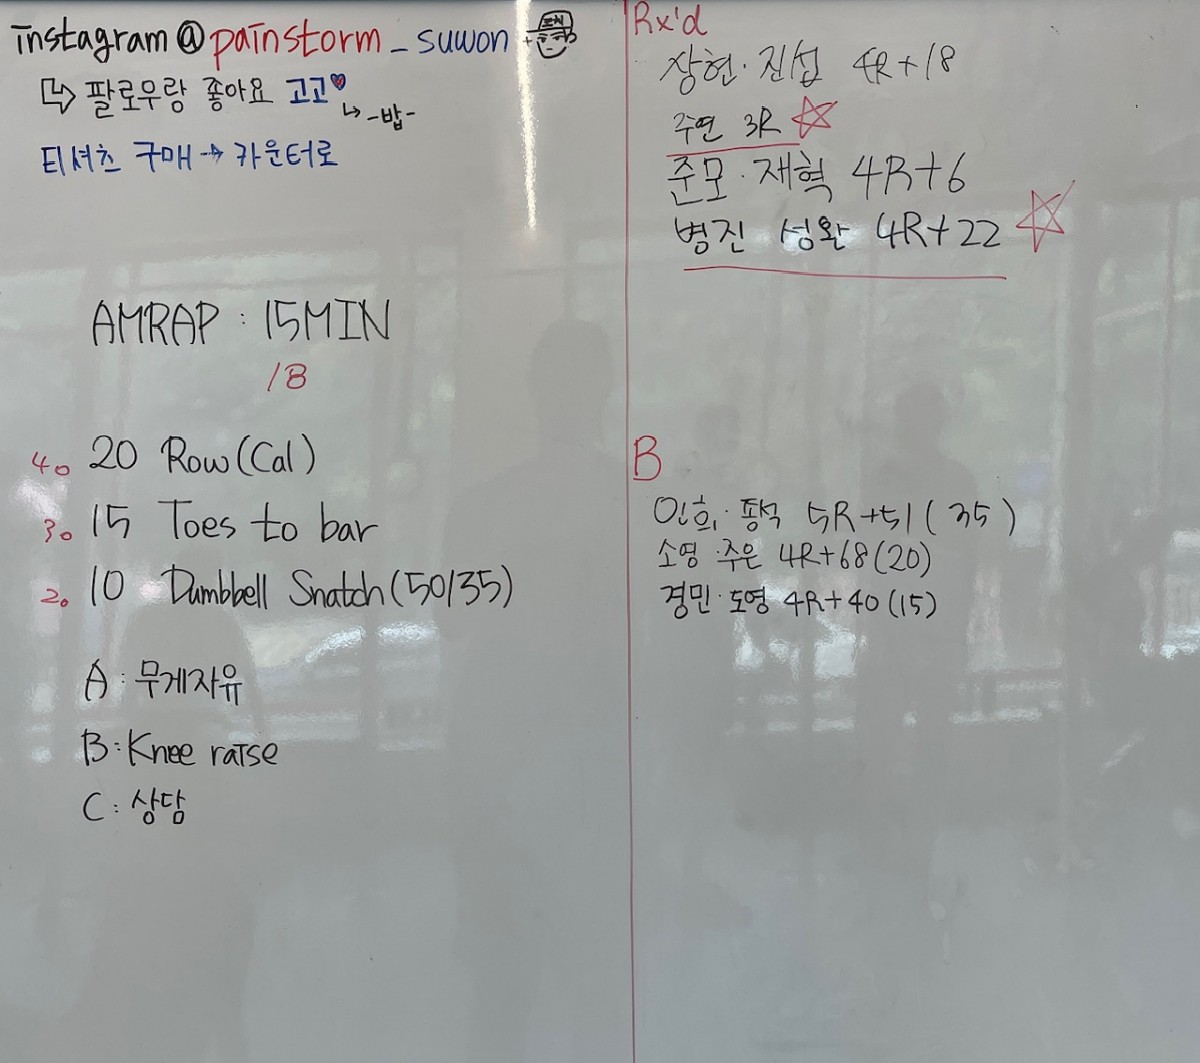 instagram@painstorm_suwon
↳ 팔로우랑 좋아요 고고♥
↳ -밥-
티셔츠 구매→카운터로
AMRAP : 15MIN
18
40 20 Row(Cal)
30 15 Toes to bar
20 10 Dumbbell Snatch(50/35)
A : 무게자유
B : Knee raise
C : 상담
Rx'd
장현·진섭 4R+18
주연 3R ☆
준모·재혁 4R+6
병진 성완 4R+22 ☆
B
5R+51(35)
소영·주은 4R+68(20)
경민·도영 4R+40(15)